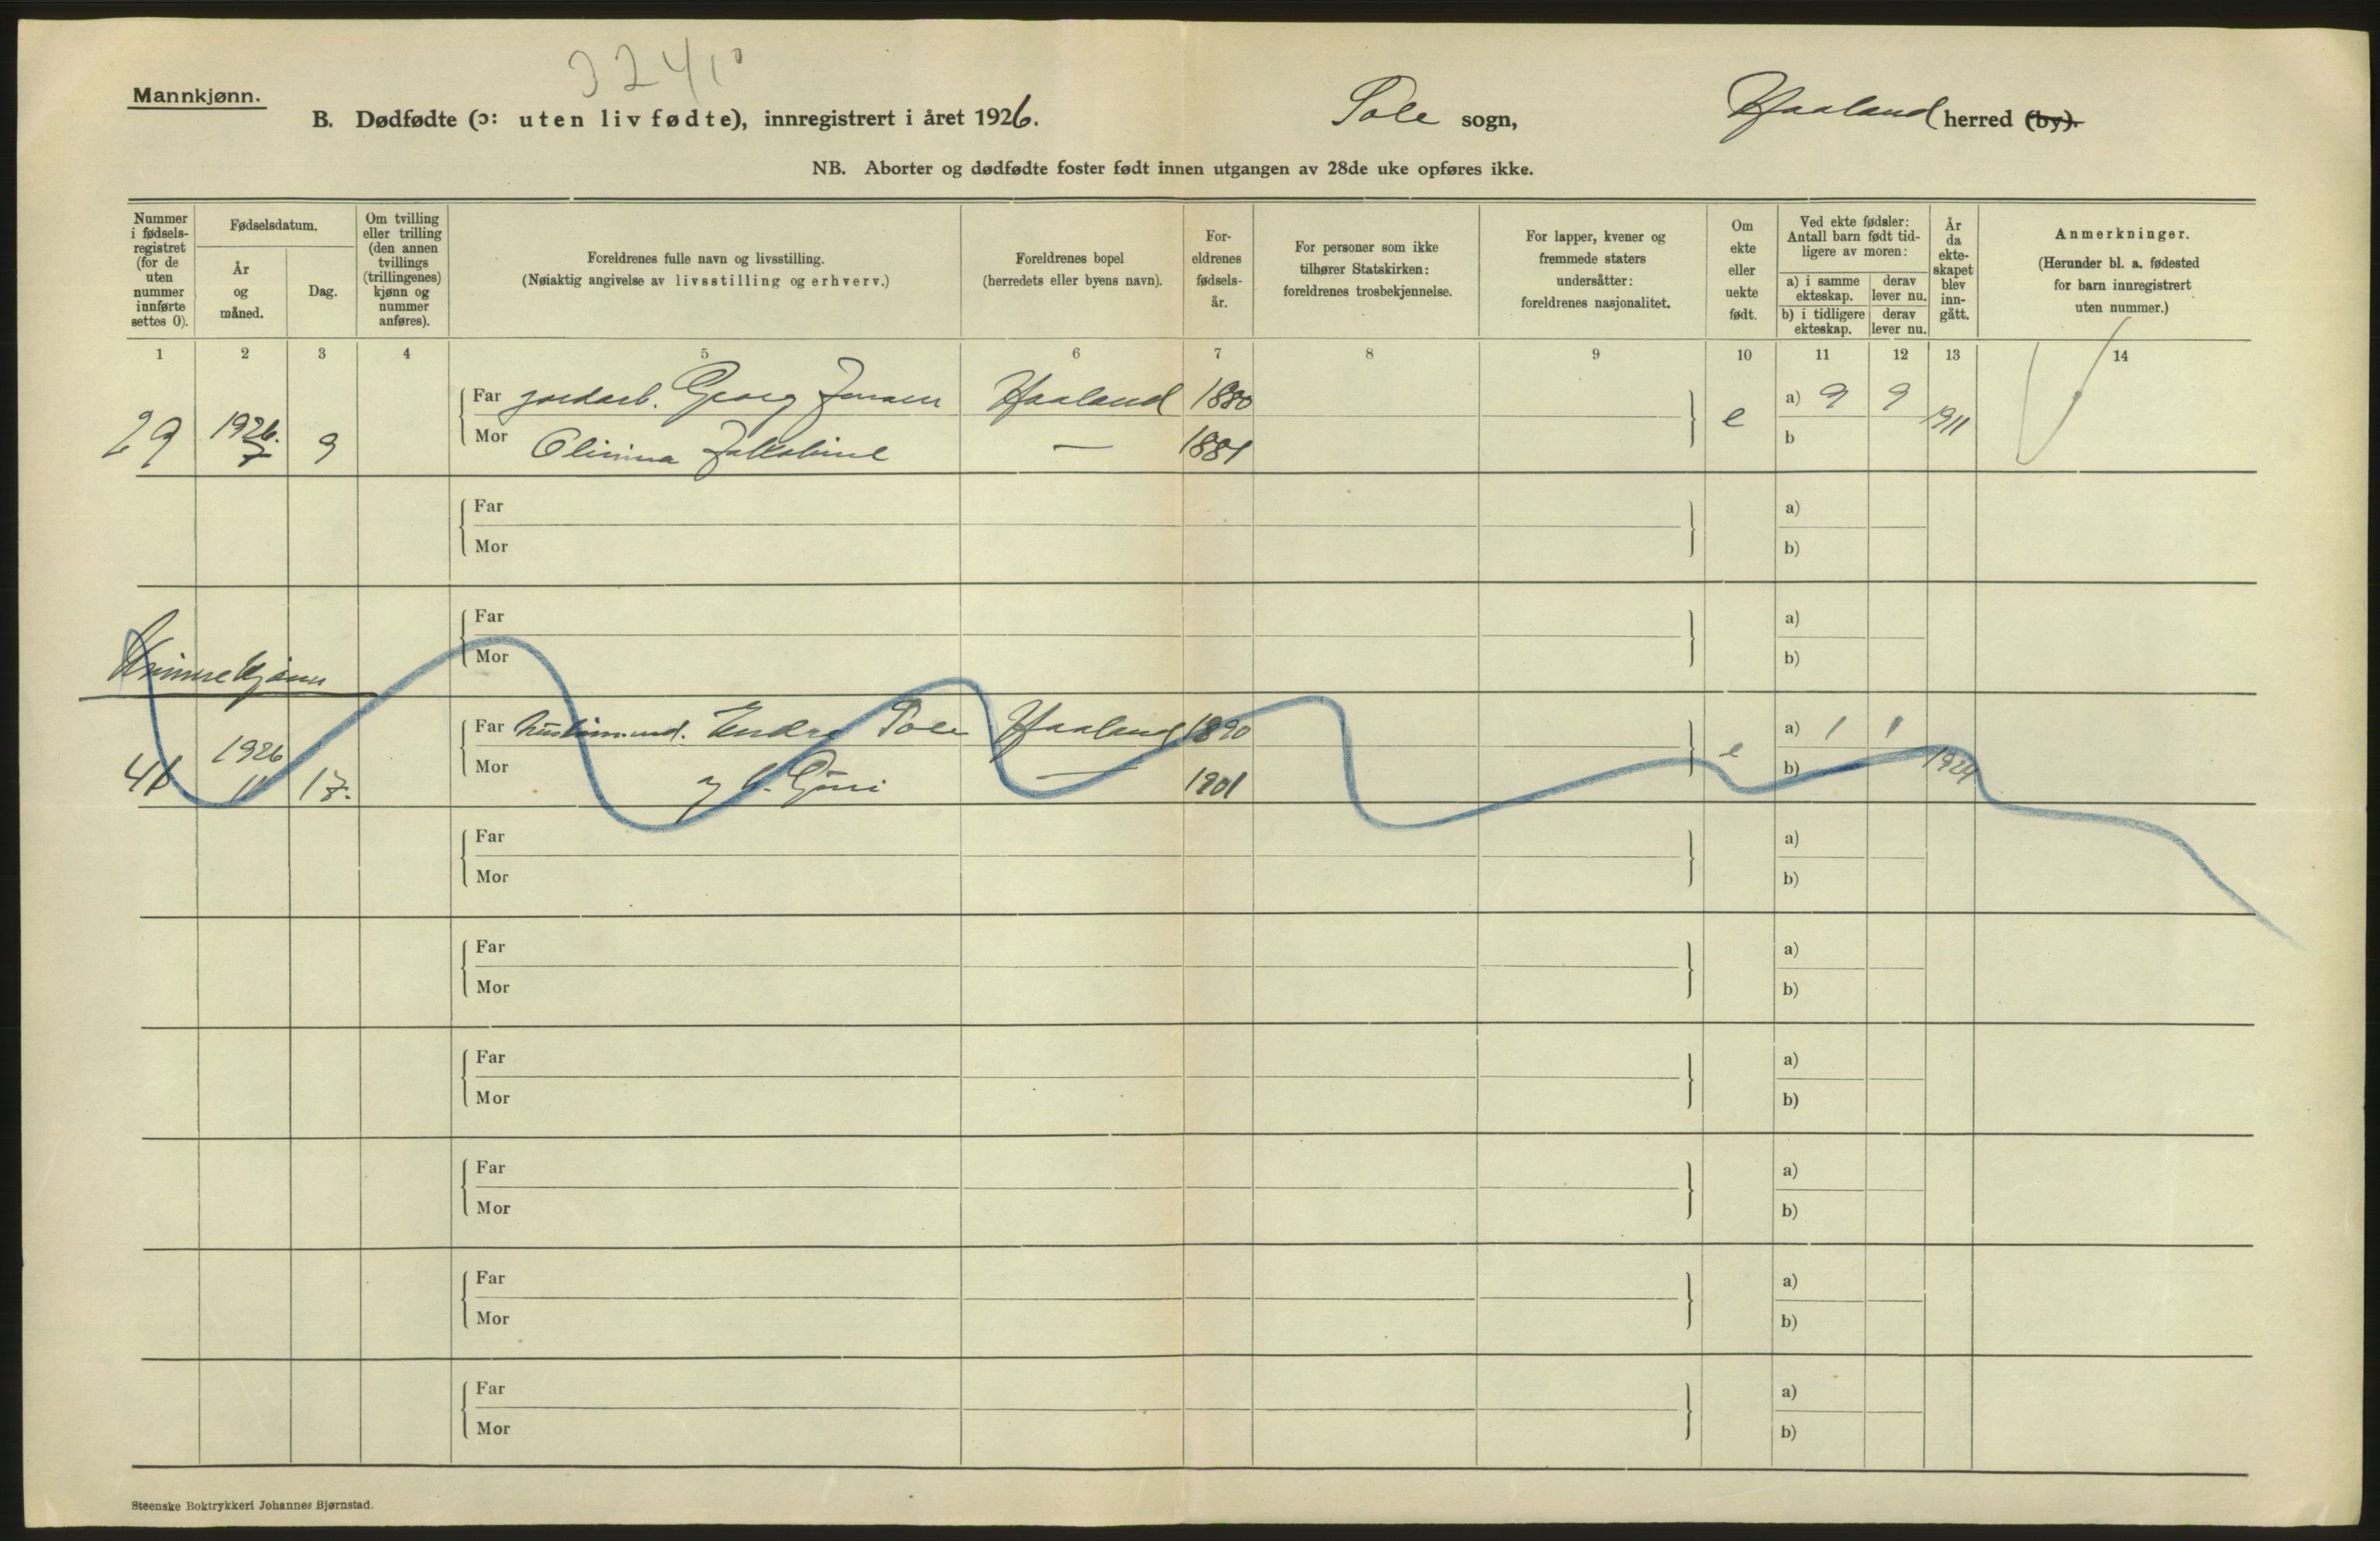 Mannkjønn.
B. Dødfødte (ɔ: uten liv fødte), innregistrert i året 1926. Sole sogn, Haaland herred (by).
NB. Aborter og dødfødte foster født innen utgangen av 28de uke opføres ikke.
Nummer i fødsels-registret (for de uten nummer innførte settes 0).
Fødselsdatum.
År og måned.
Dag.
Om tvilling eller trilling (den annen tvillings (trillingenes) kjønn og nummer anføres).
Foreldrenes fulle navn og livsstilling.
(Nøiaktig angivelse av livsstilling og erhverv.)
Foreldrenes bopel
(herredets eller byens navn).
For-eldrenes fødsels-år.
For personer som ikke tilhører Statskirken: foreldrenes trosbekjennelse.
For lapper, kvener og fremmede staters undersåtter: foreldrenes nasjonalitet.
Om ekte eller uekte født.
Ved ekte fødsler: Antall barn født tid-ligere av moren:
a) i samme ekteskap. derav lever nu.
b) i tidligere ekteskap. derav lever nu.
År da ekte-skapet blev inn-gått.
Anmerkninger.
(Herunder bl. a. fødested for barn innregistrert uten nummer.)
1 2 3 4 5 6 7 8 9 10 11 12 13 14
Far jordarb. Georg Jensen Haaland 1880 a) 9 9
29 1926. 7 9 e 1911
Mor Olinna 1881 b
Far a)
Mor b)
Far a)
Mor b)
Kvinnekjønn
Far Endre Sole Haaland 1890 a) 1 1
41 1926 11 17. e 1924
Mor Guri 1901 b)
Far a)
Mor b)
Far a)
Mor b)
Far a)
Mor b)
Far a)
Mor b)
Far a)
Mor b)
Far a)
Mor b)
Steenske Boktrykkeri Johannes Bjørnstad.